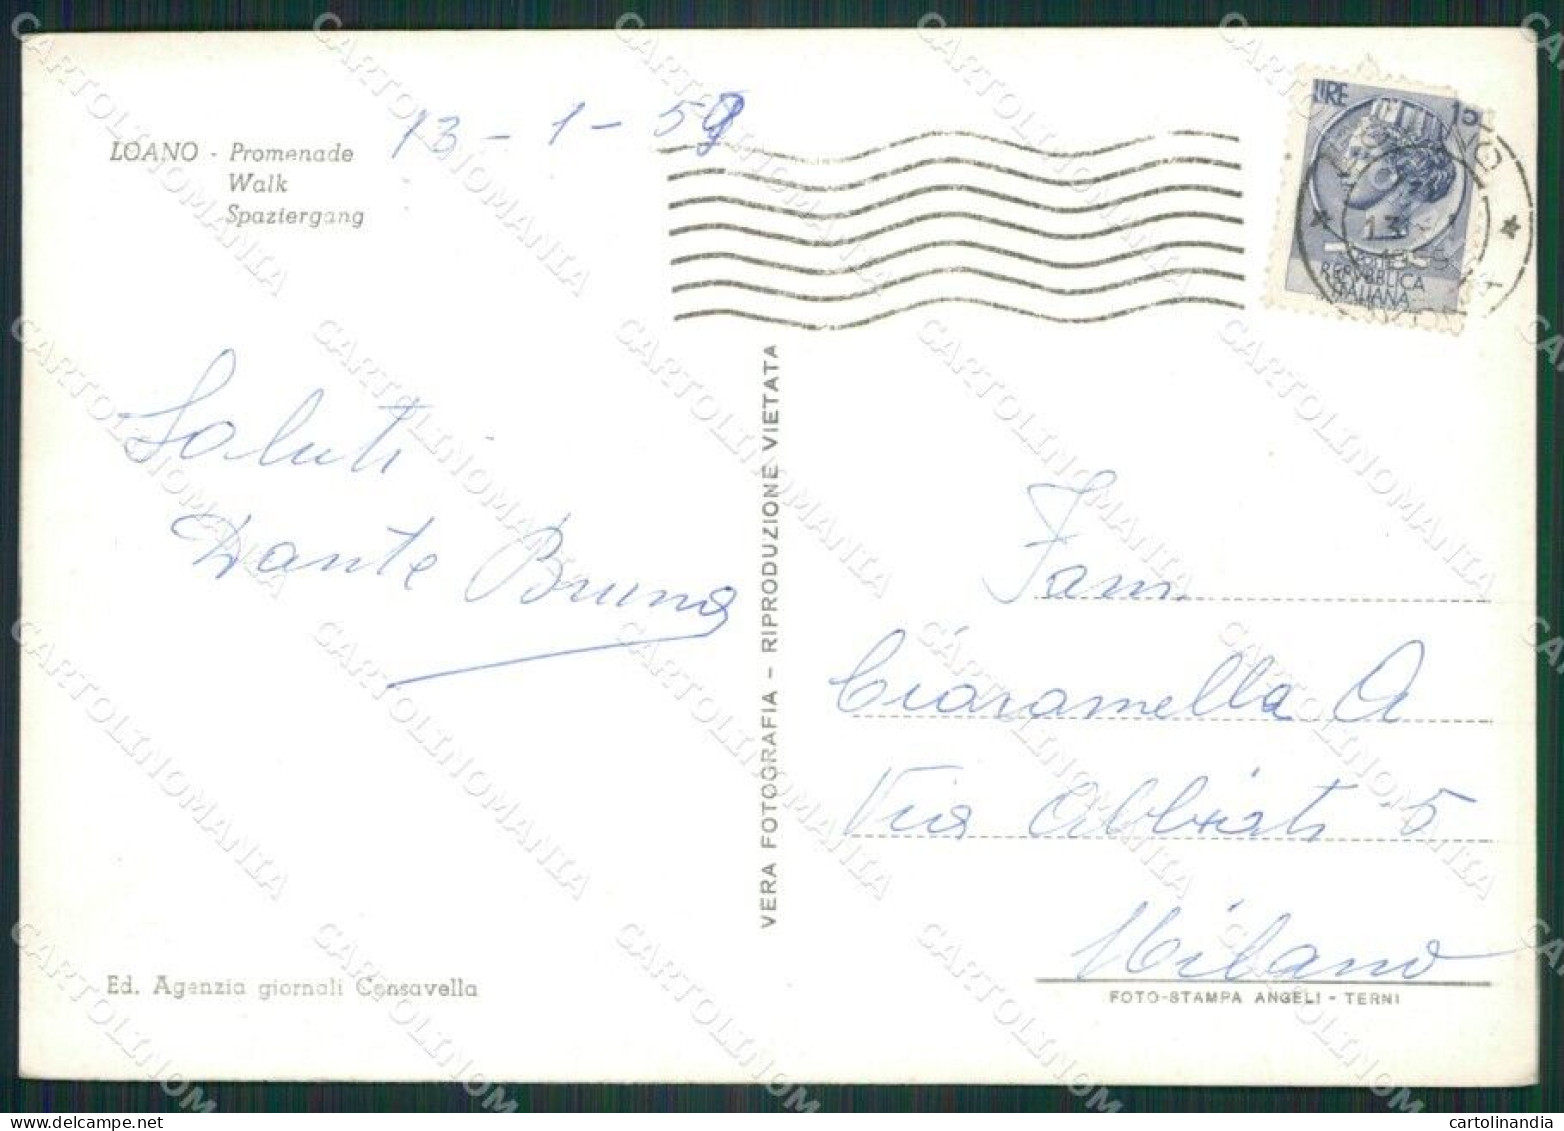 LOANO - Promenade
Walk
Spaziergang
13 - 1 - 59
LIRE 15
13
REPVBBLICA
ITALIANA
Saluti
Dante Bruno
VERA FOTOGRAFIA - RIPRODUZIONE VIETATA
Fam
Ciaramella A
Via Abbiati 5
Milano
Ed. Agenzia giornali Consavella
FOTO-STAMPA ANGELI - TERNI
CARTOLINOMANIA
cartolinandia